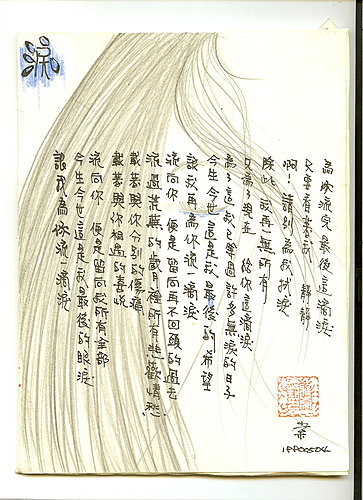 淚
為你流完最後這滴淚
只要看著我 靜靜
啊！請別為我拭淚
除此 我再無所有
只為了 給你這滴淚
為了這 我已 過許多無淚的日子
今生今世 這是我最後的希望
讓我再為你流一滴淚
流向你 便是留向再不回頭的過去
流過荒蕪的歲月裡所有悲歡情愁
載著與你分別的傷痛
載著與你相遇的喜悅
流向你 便是留向我所有全部
今生今世 這是我最後的眼淚
讓我為你流一滴淚